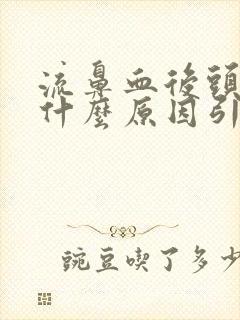 流鼻血後頭
什麼原因引
豌豆喫了多少